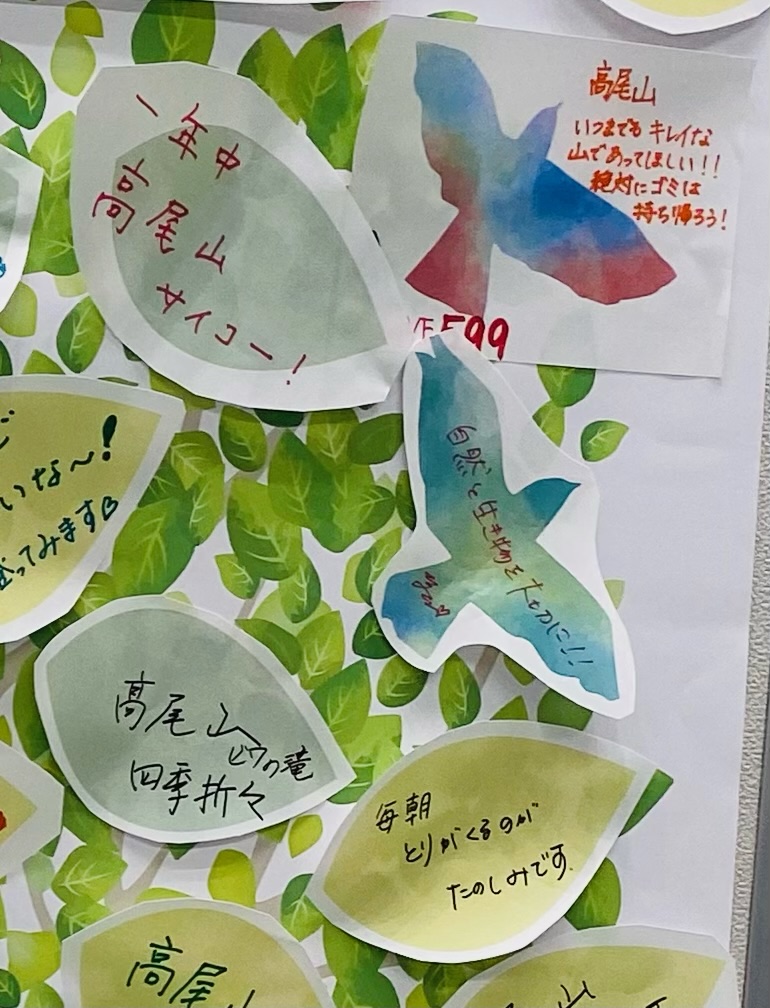 一年中
高尾山
サイコー!
高尾山
いつまでも キレイな
山であってほしい!!
絶対にゴミは
持ち帰ろう!
599
自然と生き物を大切に!!
いな〜!
ってみます
高尾山
ビワの滝
四季折々
毎朝
とりがくるのが
たのしみです.
高尾山
山